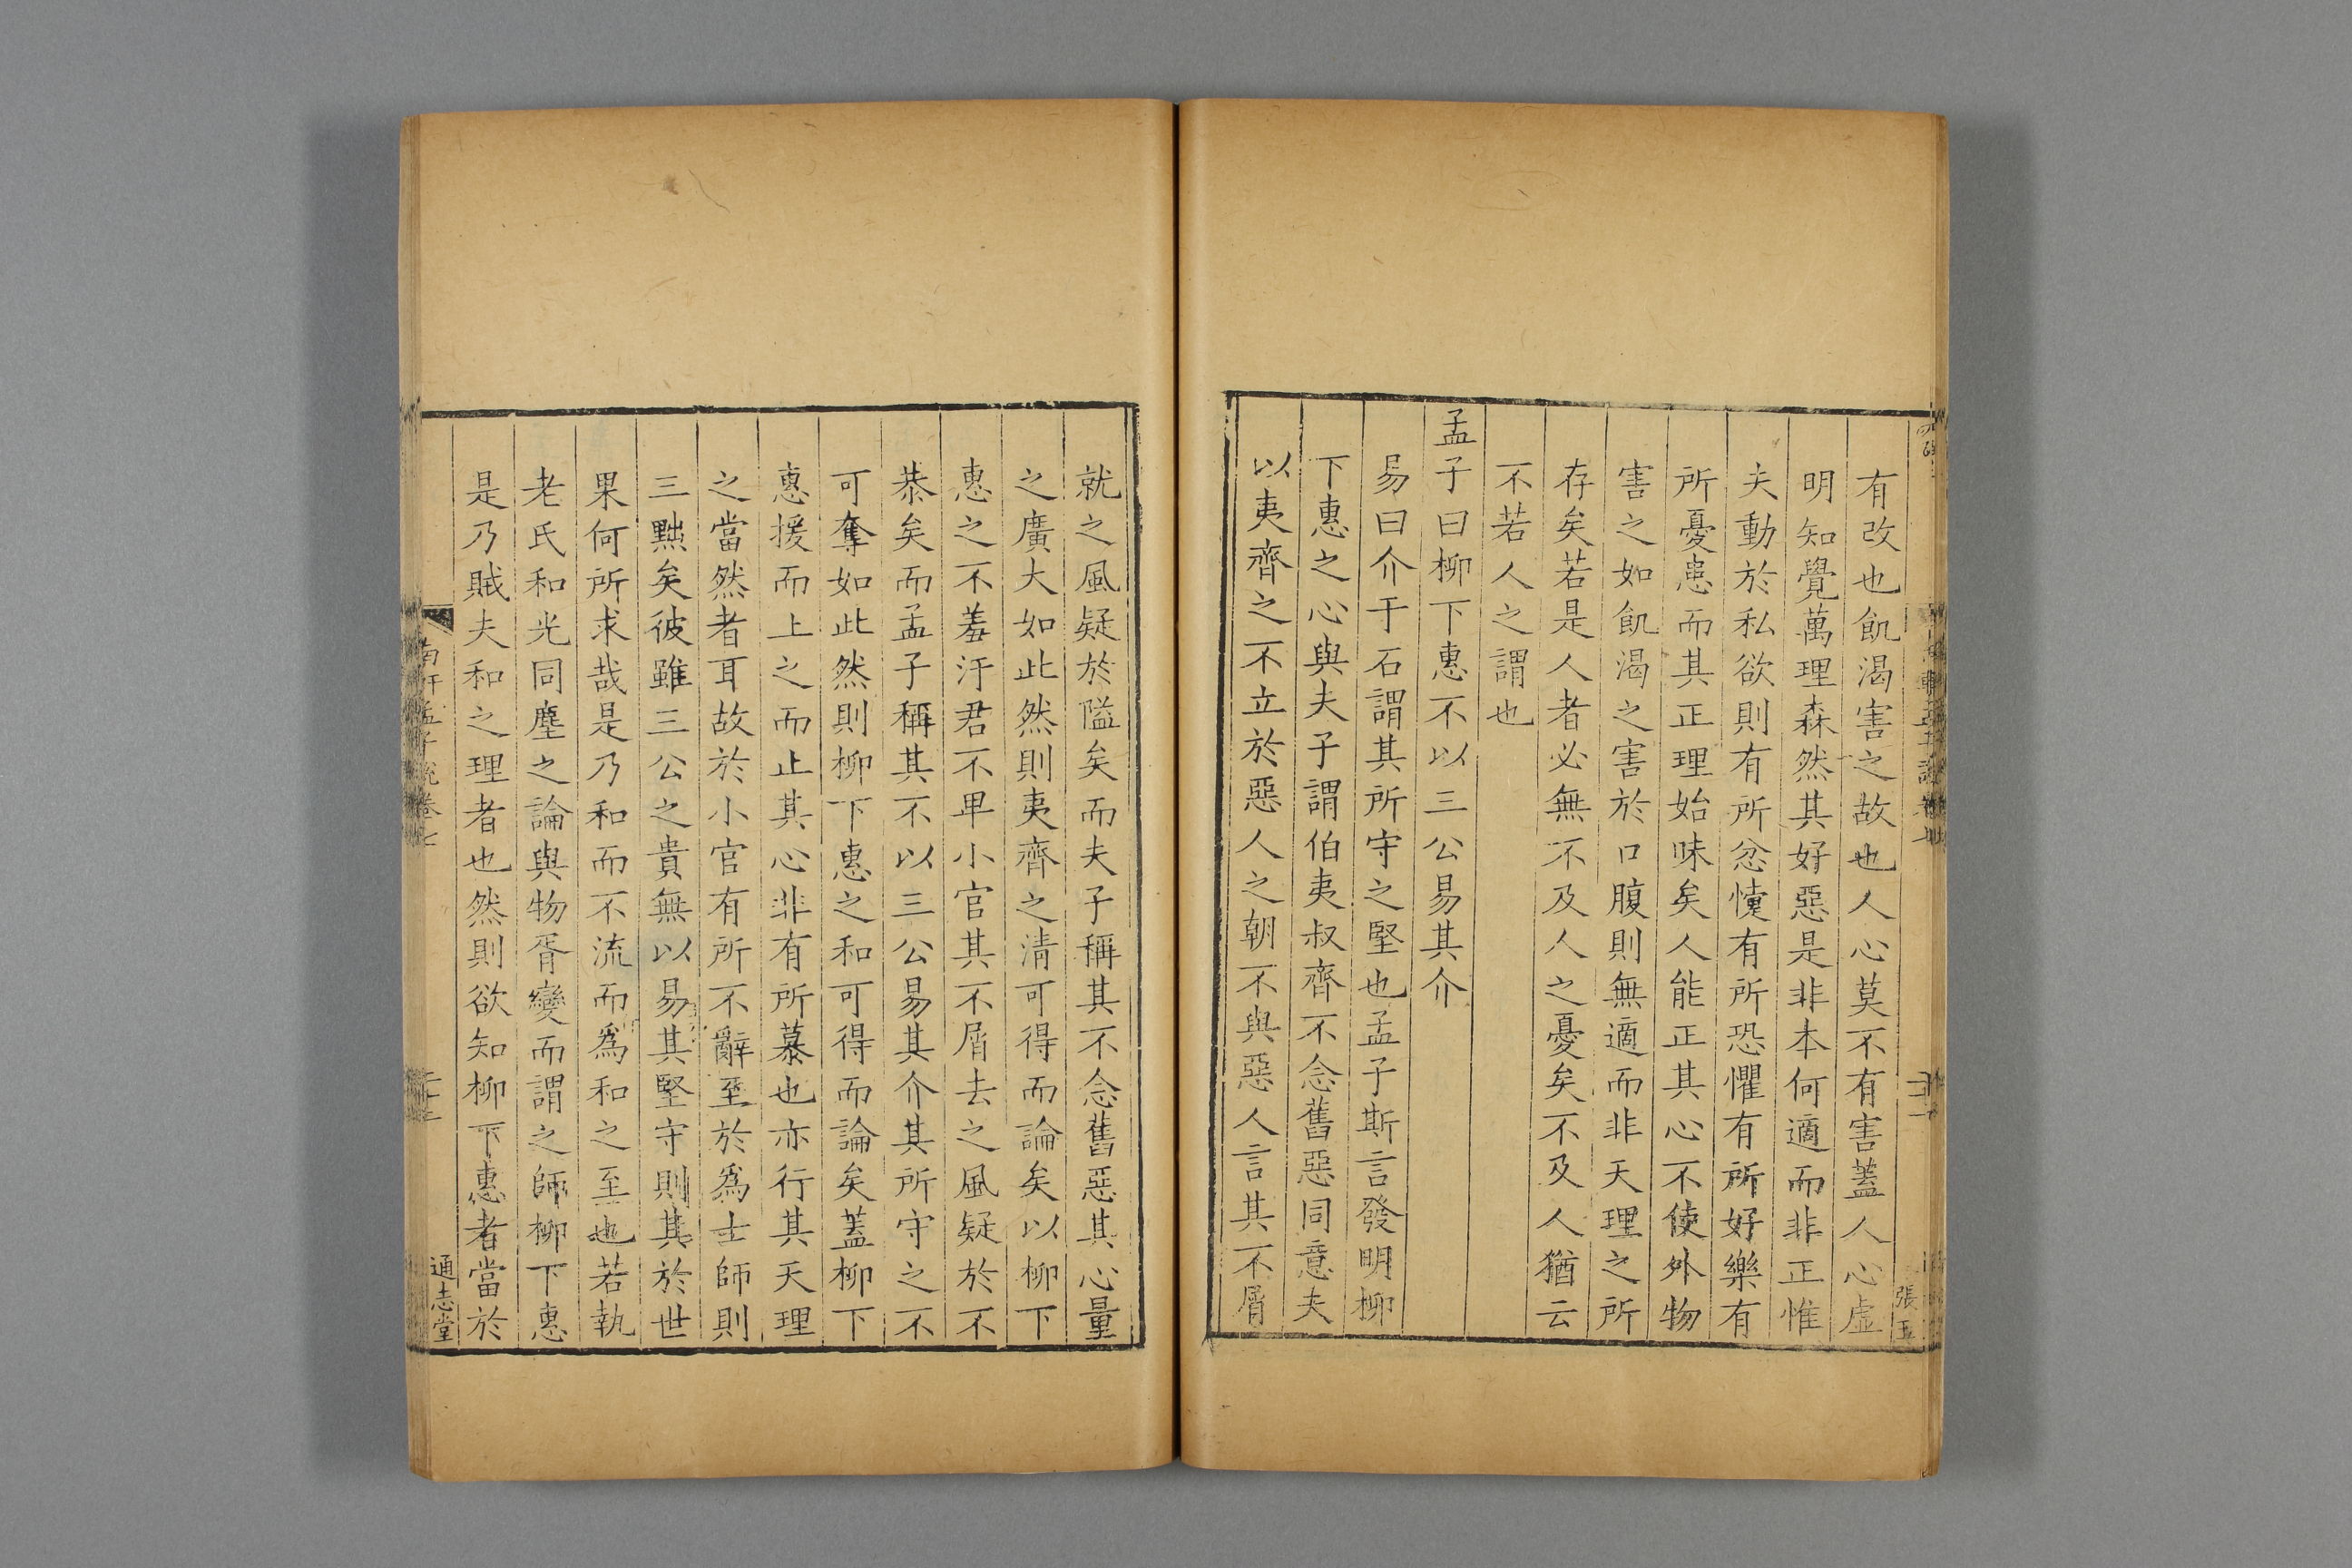 有改也飢渴害之故也人心莫不有害蓋人心虛
明知覺萬理森然其好惡是非本何適而非正惟
夫動於私欲則有所忿懥有所恐懼有所好樂有
所憂患而其正理始昧矣人能正其心不使外物
害之如飢渴之害於口腹則無適而非天理之所
存矣若是人者必無不及人之憂矣不及人猶云
不若人之謂也
孟子曰柳下惠不以三公易其介
易曰介于石謂其所守之堅也孟子斯言發明柳
下惠之心與夫子謂伯夷叔齊不念舊惡同意夫
以夷齊之不立於惡人之朝不與惡人言其不屑
張五
就之風疑於隘矣而夫子稱其不念舊惡其心量
之廣大如此然則夷齊之清可得而論矣以柳下
惠之不羞汙君不卑小官其不屑去之風疑於不
恭矣而孟子稱其不以三公易其介其所守之不
可奪如此然則柳下惠之和可得而論矣蓋柳下
惠援而止之而止其心非有所慕也亦行其天理
之當然者耳故於小官有所不辭至於爲士師則
三黜矣彼雖三公之貴無以易其堅守則其於世
果何所求哉是乃和而不流而爲和之至也若執
老氏和光同塵之論與物胥變而謂之師柳下惠
是乃賊夫和之理者也然則欲知柳下惠者當於
南軒孟子說卷七
通志堂